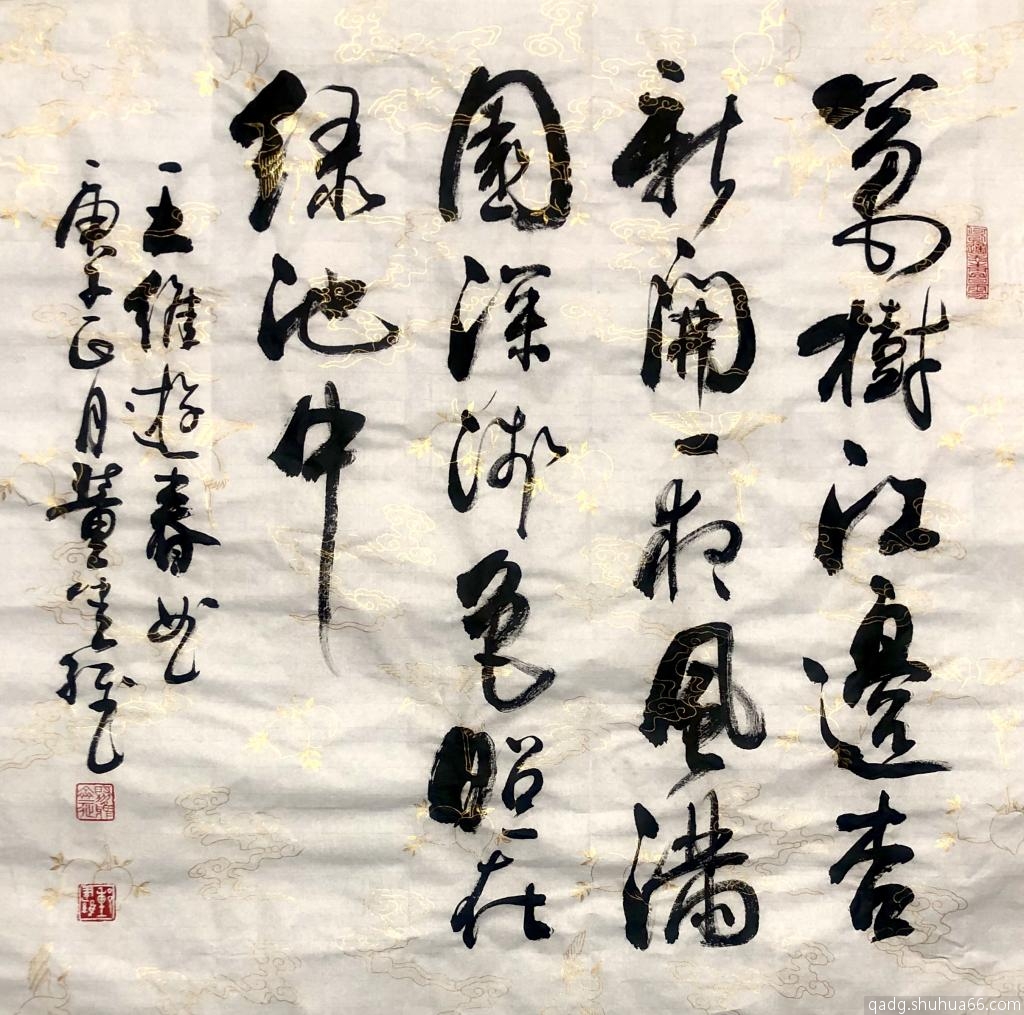 萬樹江邊杏
新開一夜風滿
園深淺色照在
綠池中
王維遊春曲
庚子正月黃
qadg.shuhua66.com